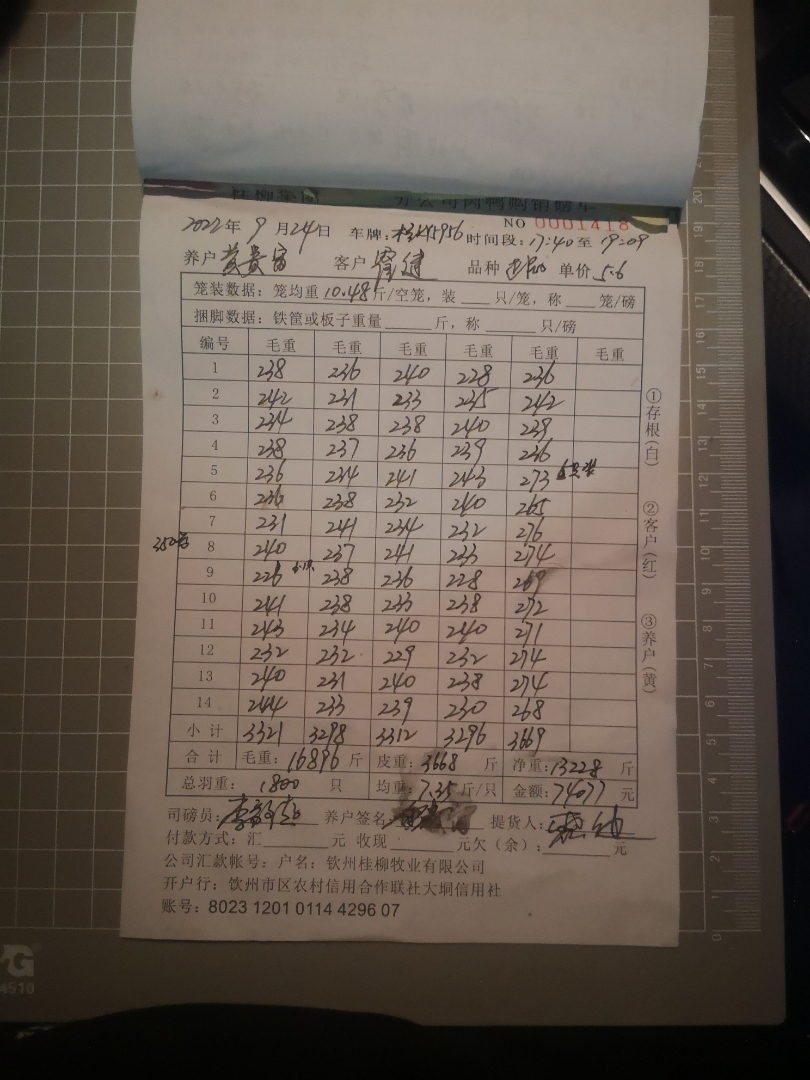 分公司肉鸭购销磅单
NO 0001418
2022年 9月24日 车牌: 时间段:17:40至19:09
养户 客户 品种 单价5.6
笼装数据:笼均重10.48斤/空笼,装___只/笼,称___笼/磅
捆脚数据:铁筐或板子重量______斤,称______只/磅
编号 毛重 毛重 毛重 毛重 毛重 毛重
1 238 236 240 228 236
2 242 231 233 235 242
3 234 238 238 240 239
4 238 237 236 239 236
5 236 234 241 243 273
6 236 238 232 240 265
7 231 241 234 232 276
350笼
8 240 237 241 233 274
9 226 238 236 228 269
10 241 238 233 238 272
11 243 234 240 240 271
12 232 232 229 232 274
13 240 231 240 238 274
14 244 233 239 230 268
小计 3321 3298 3312 3296 3669
合计 毛重:16896斤 皮重:3668斤 净重:13228斤
总羽重:1800只 均重:7.35斤/只 金额:74077元
司磅员: 养户签名: 提货人:
付款方式:汇________元 收现________元欠(余):________元
公司汇款帐号:户名:钦州桂柳牧业有限公司
开户行:饮州市区农村信用合作联社大垌信用社
账号:8023 1201 0114 4296 07
①存根(白)
②客户(红)
③养户(黄)
4510